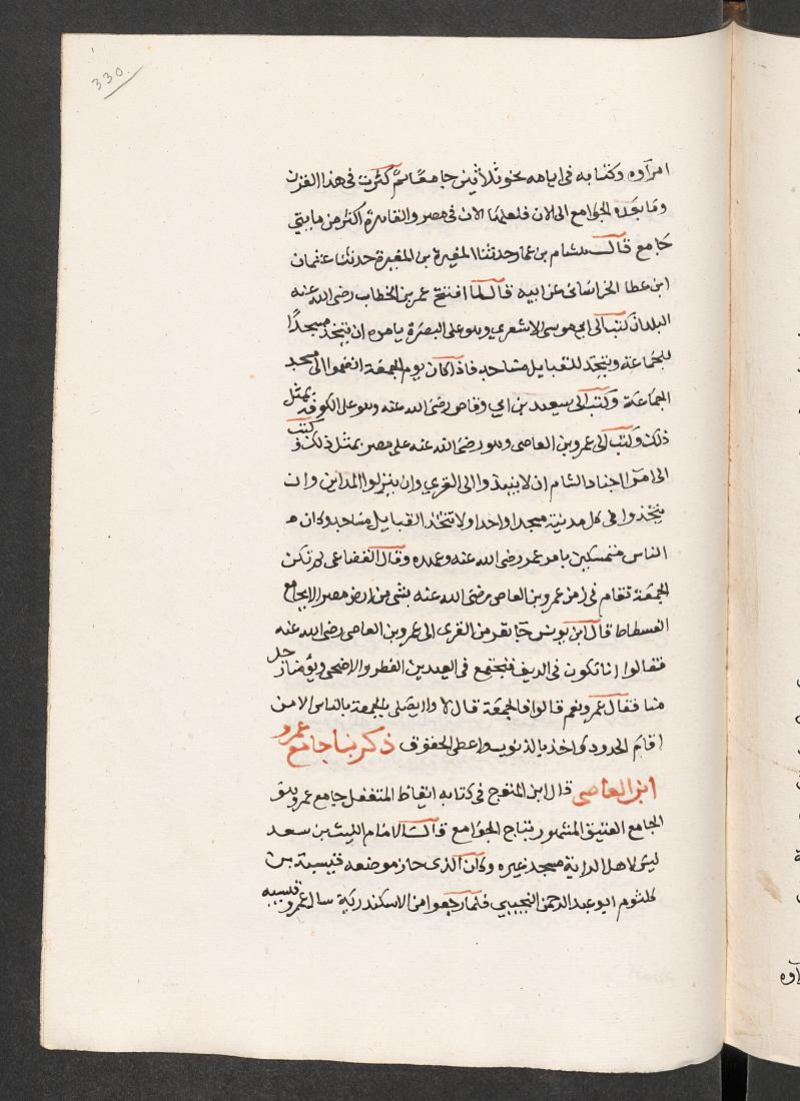 330
امراوه وكتابه في ايامه نحو ثلاثين جامعا ثم كثرت في هذا القرن
وما بعده الجوامع الى الان فلعلها الان في مصر والقاهرة اكثر من مايتي
جامع قال هشام بن عمار وحدثنا المغيرة بن المغيرة حدثنا عثمان
ابن عطا الخراساني عن ابيه قال لما افتتح عمر بن الخطاب رضي الله عنه
البلدان كتب الى ابي موسى الاشعري وهو على البصرة يامره ان يتخذ مسجدا
للجماعة ويتخذ للقبايل مساجد فاذا كان يوم الجمعة انضموا الى مسجد
الجماعة وكتب الى سعيد بن ابي وقاص رضي الله عنه وهو على الكوفة بمثل
ذلك وكتب الى عمرو بن العاصي وهو رضي الله عنه على مصر بمثل ذلك وكتب
الى امرا اجناد الشام ان لا ينبذوا الى القري وان ينزلوا المداين وان
يتخذوا في كل مدينة مسجدا واحدا ولا تتخذ القبايل مساجد وكان
الناس متمسكين بامر عمر رضي الله عنه وعهده وقال القضاعي لم تكن
الجمعة تقام في زمن عمرو بن العاص رضي الله عنه بشي من ارض مصر الا بجامع
الفسطاط قال ابن يونس جا نفر من القرى الى عمرو بن العاصي رضي الله عنه
فقالوا انا نكون في الريف فنجتمع في العيدين الفطر والاضحى ويؤمنا رجل
منا فقال عمرو نعم قالوا فالجمعة قال لا ولا يصلي بالجمعة بالناس الا من
اقام الحدود واخذ بالذنوب واعطى الحقوق ذكر بنا جامع عمرو
ابن العاصي قال ابن المتوج في كتابه ايقاظ المتغفل جامع عمرو هو
الجامع العتيق المشهور بتاج الجوامع قال الامام الليث بن سعد
ليس لاهل الراية مسجد غيره وكان الذي حاز موضعه قيسبة بن
كلثوم ابو عبد الرحمن التجيبي فلما رجعوا من الاسكندرية سال عمرو قيسبه